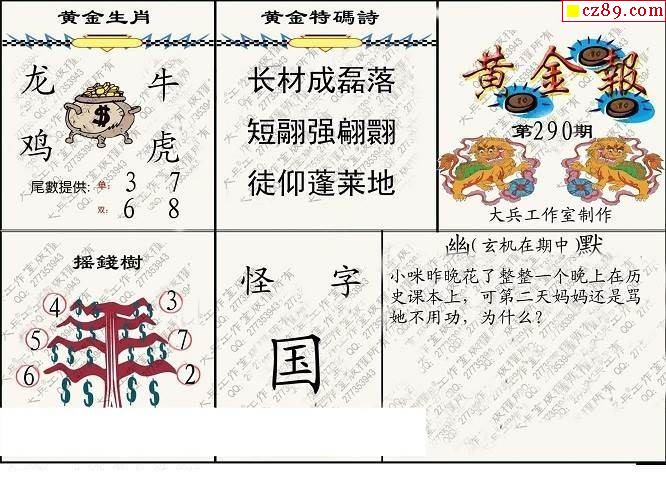 cz89.com
黄金生肖
龙 牛
鸡 虎
$
尾數提供: 单: 3 7
双: 6 8
黄金特碼詩
长材成磊落
短翮强翩翾
徒仰蓬莱地
黄金報
第290期
大兵工作室制作
摇錢樹
4 3
5 7
6 2
怪 字
国
幽(玄机在期中)默
小咪昨晚花了整整一个晚上在历
史课本上,可第二天妈妈还是骂
她不用功,为什么?
大兵工作室版權所有
QQ:277353943